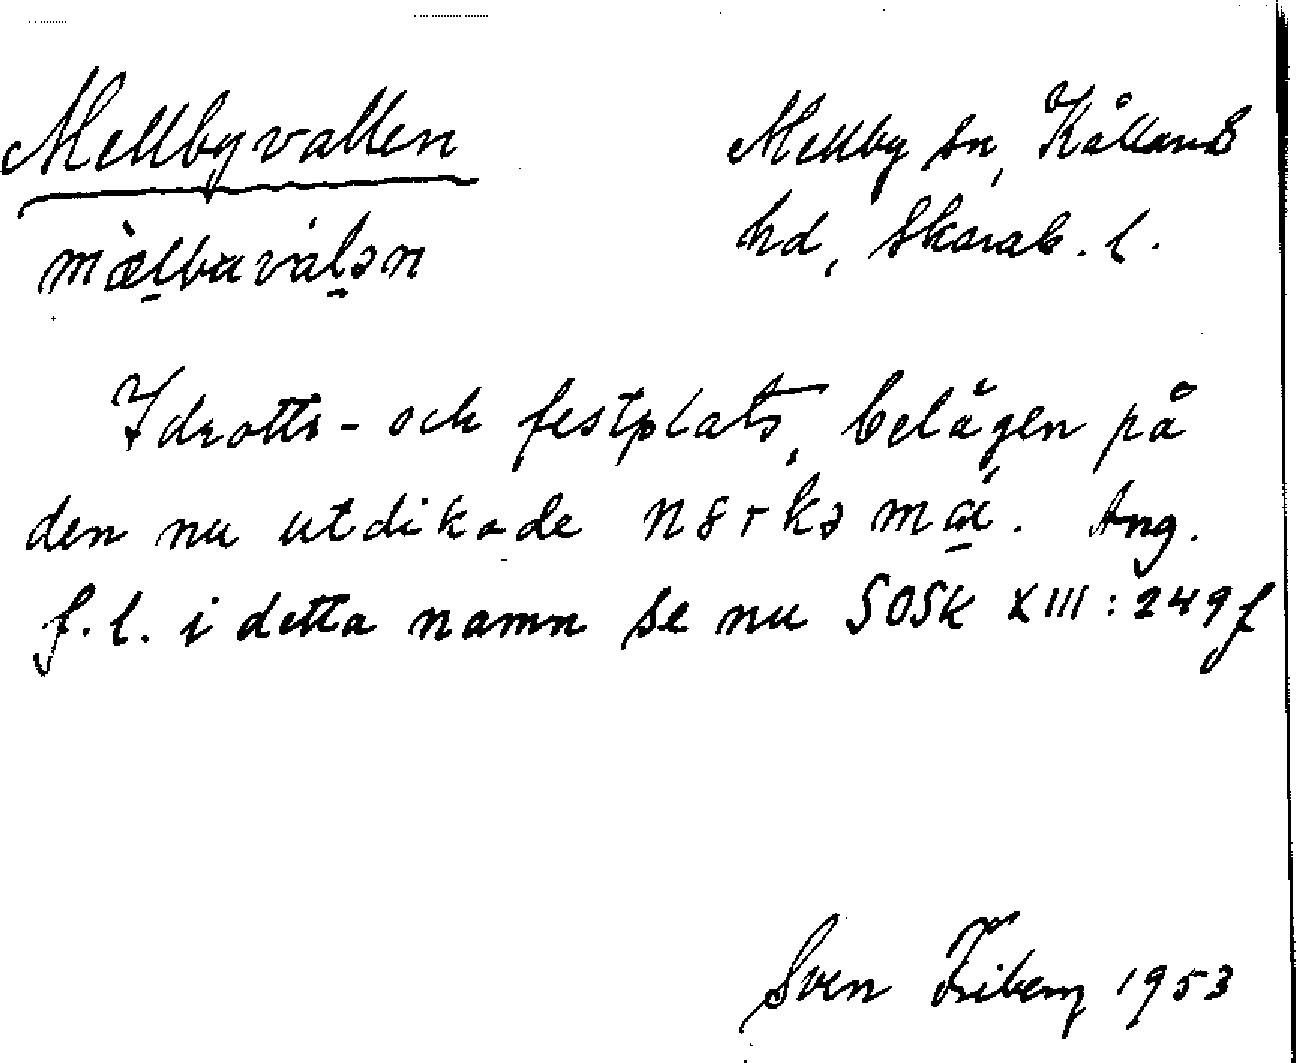 Mellbyvallen
Mellby sn, Kållands
hd, Skarab. l.
mæ̀lbaválən
Idrotts- och festplats, belägen på
den nu utdikade
Ang.
f. l. i detta namn se nu SOSk XIII: 249 f
Sven Friberg 1953